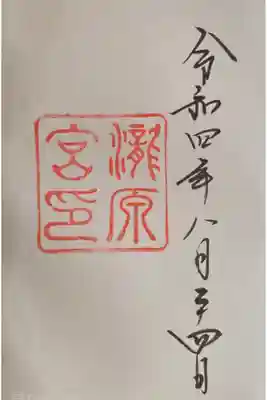 令和四年八月二十四日
瀧原
宮印